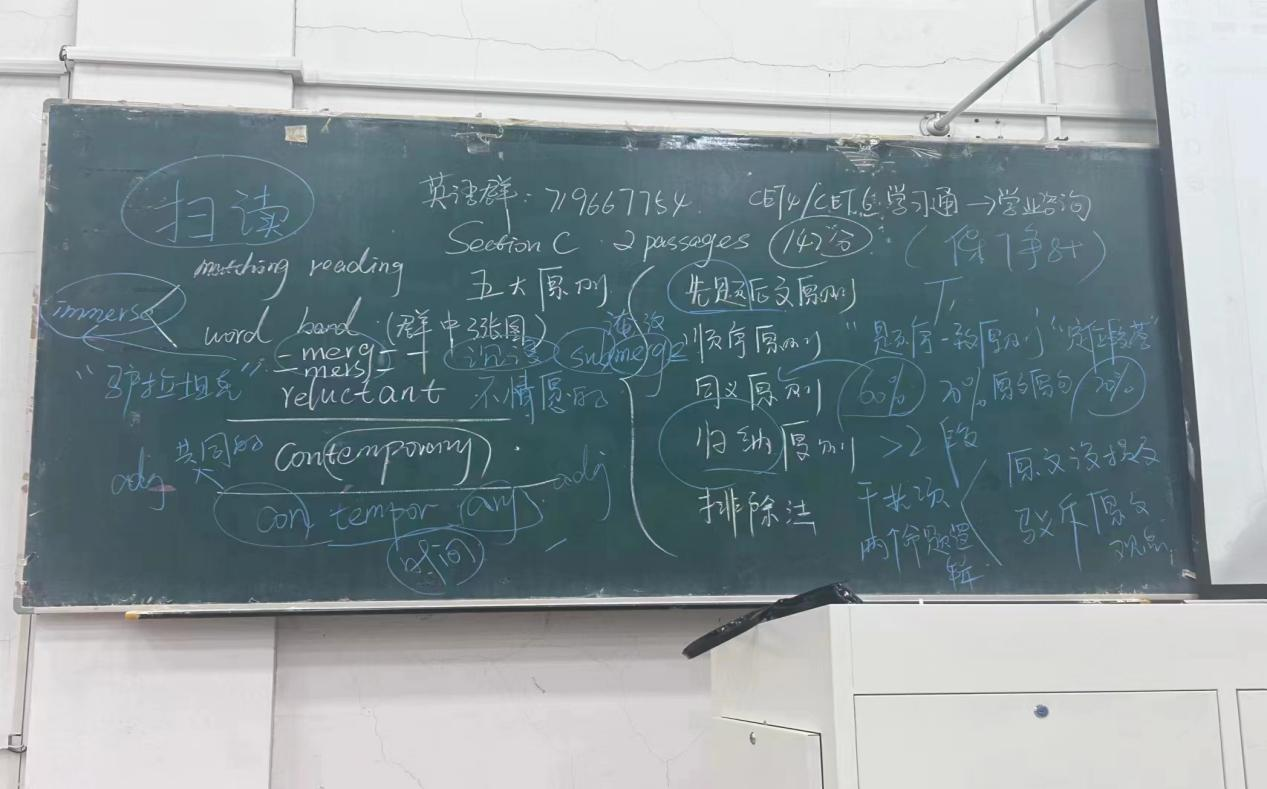 扫读
英语群: 719667754 CET4/CET6 学习通→学业咨询
Section C 2 passages 142分 (保7争8+)
matching reading
五大原则
先题后文原则
immerse
word band (群中3张图)
淹没
顺序原则 "题序一致原则"
-merg-
-mers-
沉浸 submerge
"驴拉坦克"
reluctant 不情愿的
同义原则 60% 20% 原句 20%
共同的
contemporary
归纳原则 >2段
原文没提及
adj con tempor ary adj
排除法
干扰项
两个命题逻辑
驳斥原文
观点
时间